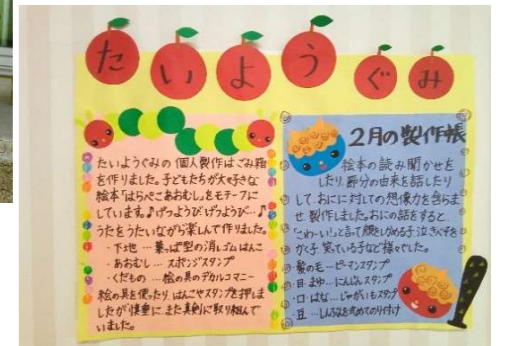 たいようぐみ
たいようぐみの個人製作はごみ箱
を作りました。子どもたちが大好きな
絵本"はらぺこあおむし"をモチーフに
しています。♪げつようび げつようび…♪
うたをうたいながら楽しんで作りました。
・下地…葉っぱ型の消しゴムはんこ
・あおむし…スポンジスタンプ
・くだもの…絵の具のデカルコマニー
絵の具を使ったり、はんこやスタンプを押しま
したが慎重に、また真剣に取り組んで
いました。
2月の製作帳
絵本の読み聞かせを
したり、節分の由来を話したり
して、おにに対しての想像力を膨らま
せ製作しました。おにの話をすると、
こわーい!と言って顔をしかめる子、泣きべそを
かく子、笑っている子など様々でした。
・髪の毛…ピーマンスタンプ
・目・まゆ…にんじんスタンプ
・口・はな…じゃがいもスタンプ
・豆…しんぶんを丸めてのり付け